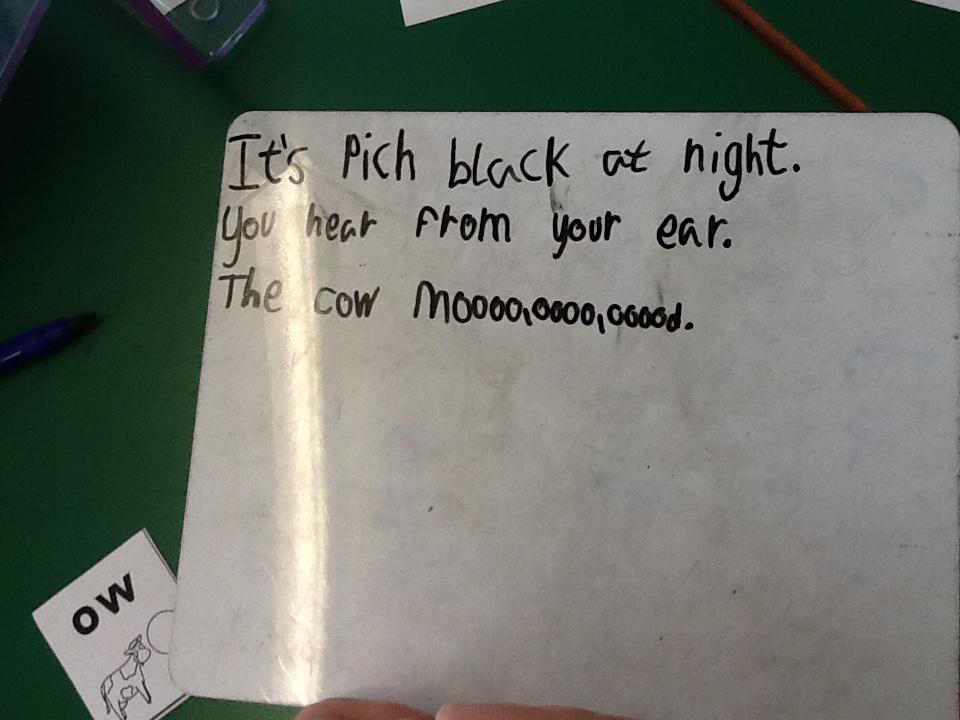 It's Pich black at night.
You hear from your ear.
The cow Moooo,oooo,ooood.
ow